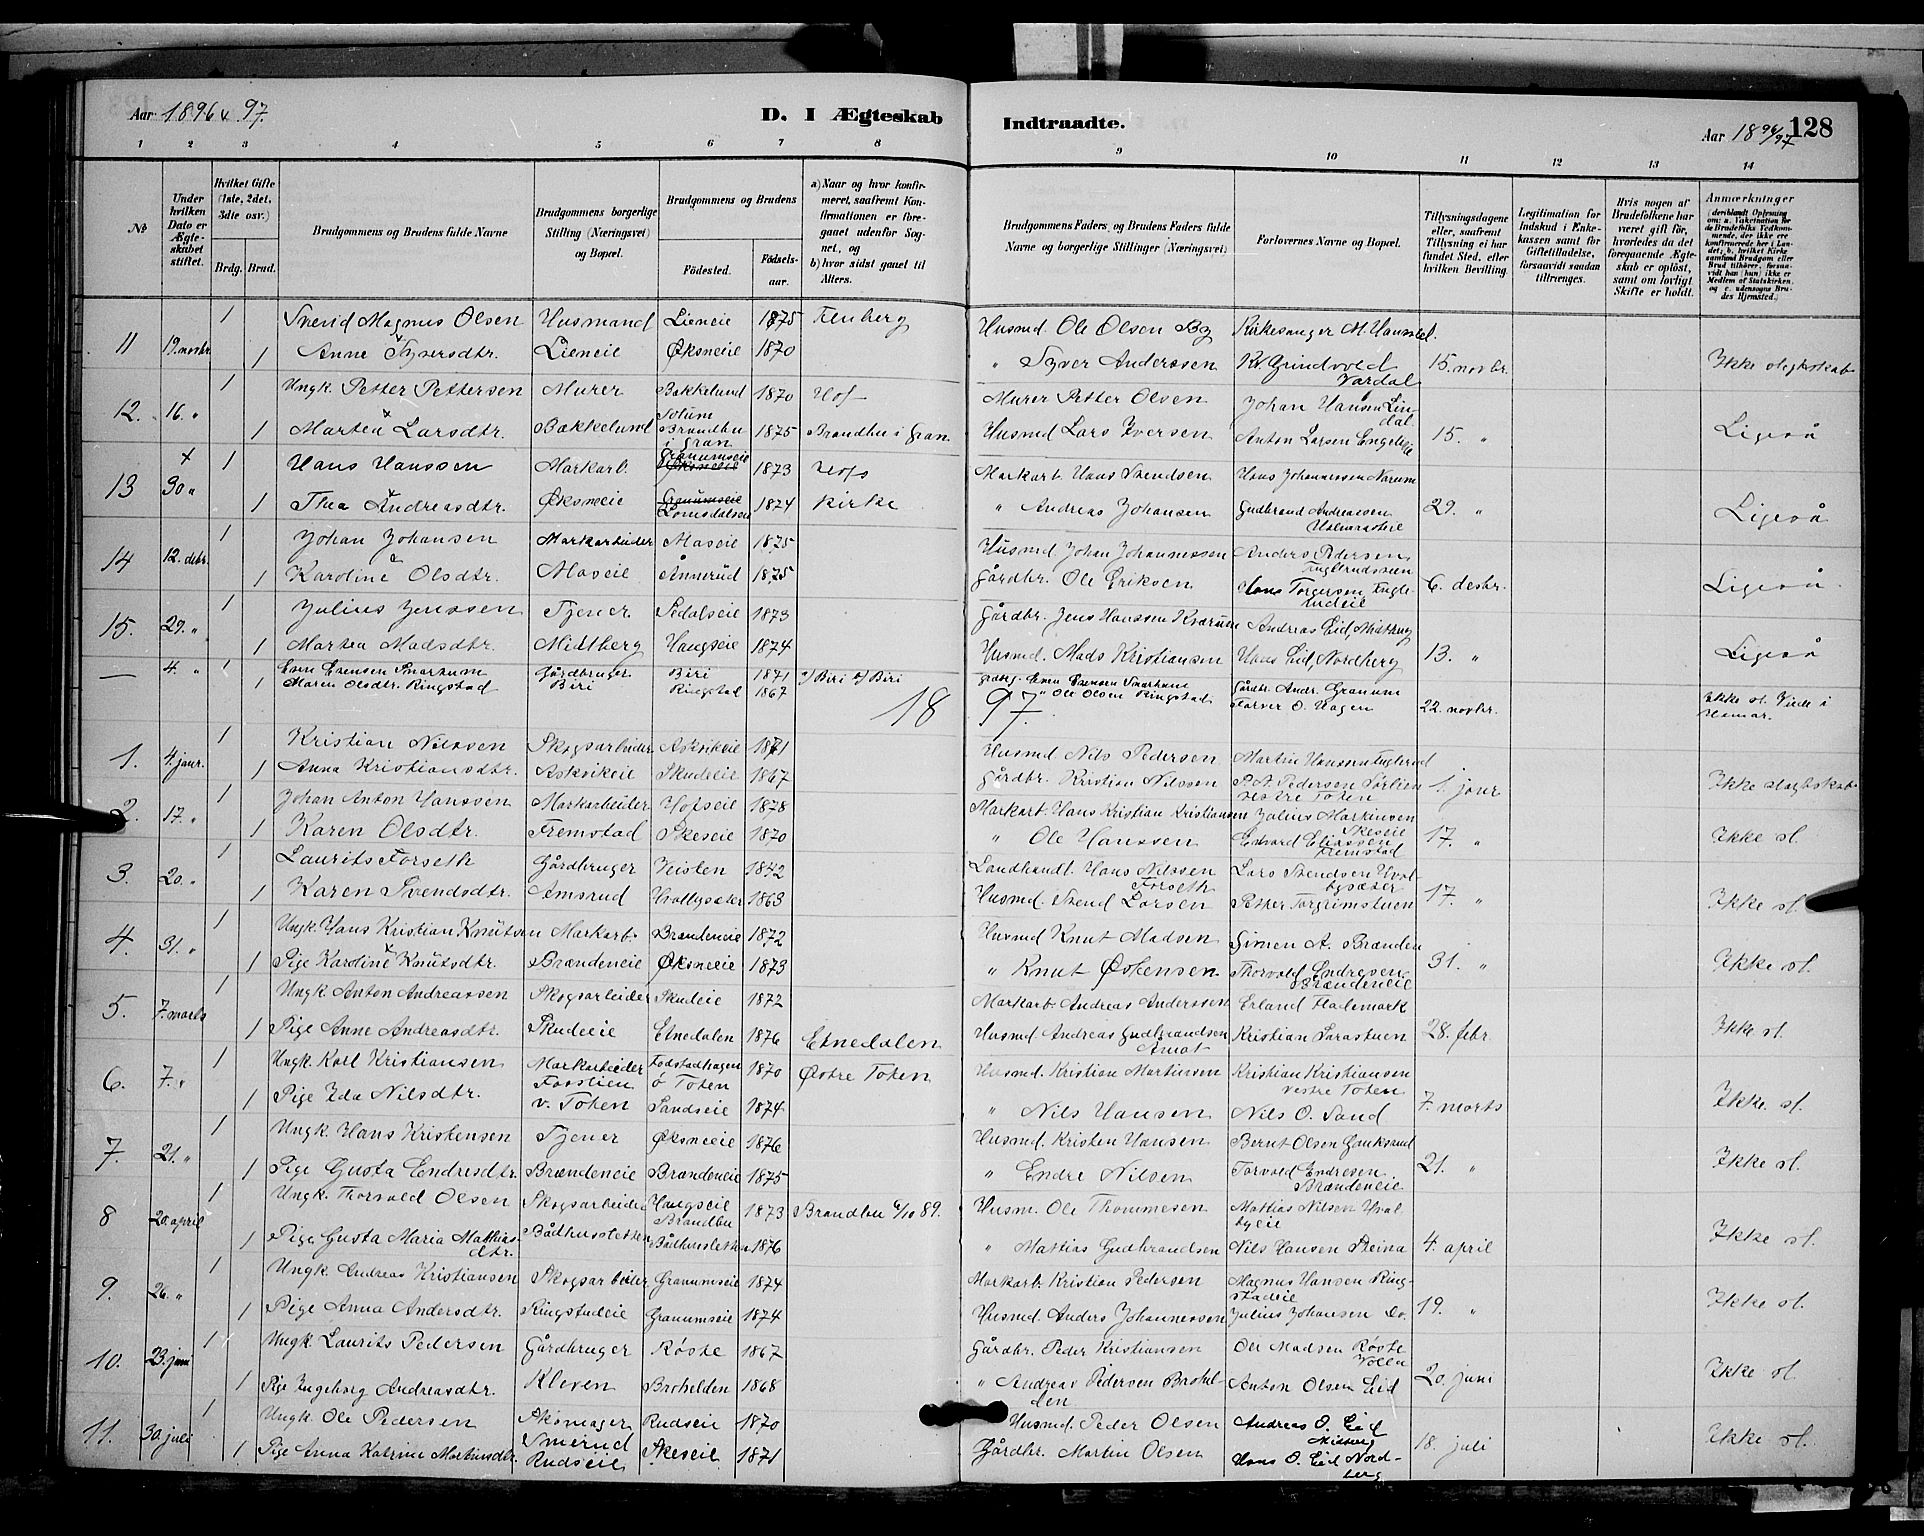 Aar 1896 & 97.
D. I Ægteskab Indtraadte.
Aar 18 96/97
128
1 2 3 4 5 6 7 8 9 10 11 12 13 14
№
Under hvilken Dato er Ægteskabet stiftet.
Hvilket Gifte (1ste, 2det, 3die osv.)
Brdg. Brud.
Brudgommens og Brudens fulde Navne
Brudgommens borgerlige Stilling (Næringsvei) og Bopæl.
Brudgommens og Brudens
Fødested. Fødselsaar.
a) Naar og hvor konfirmeret, saafremt Konfirmationen er foregaaet udenfor Sognet, og
b) hvor sidst gaaet til Alters.
Brudgommens Faders og Brudens Faders fulde Navne og borgerlige Stillinger (Næringsvei)
Forlovernes Navne og Bopæl.
Tillysningsdagene eller, saafremt Tillysning ei har fundet Sted, efter hvilken Bevilling.
Legitimation for Indskud i Enkekassen samt for Giftetilladelse, forsaavidt saadan tiltrænges.
Hvis nogen af Brudefolkene har været gift før, hvorledes da det foregaaende Ægteskab er opløst, samt om lovligt Skifte er holdt.
Anmærkninger (deriblandt Oplysning om: a. Vakcination for de Brudefolks Vedkommende, der ikke ere konfirmerede her i Landet; b. hvilket Kirkesamfund Brudgom eller Brud tilhører, forsaavidt han (hun) ikke er Medlem af Statskirken, og c. udensogns Brudes Hjemsted.)
1 Sverid Magnus Olsen Husmand Lieneie 1875 Fluberg Husmd. Ole Olsen By Kirkesanger M. Haugstol.
11 19. novbr. 1 Anne Syversdtr. Lieneie Øksneeie 1870 " Syver Anderssen Kr. Grindvold Vardal 15. novbr. Ikke slegtskab
1 Ungk. Petter Pettersen Murer Bakkelund 1870 Hof Murer Petter Olsen Johan Hansen Lindal
12. 16. " 1 Marten Larsdtr. Bakkelund Brandbu i Gran 1875 Brandbu i Gran Husmd Lars Iversen Anton Larsen 15. " Ligeså
x 1 Hans Hanssen Markarb. Granumseie 1873 Hofs Markarb. Hans Svendsen Hans Johannessen Narum
13 30 " 1 Thea Andreasdtr. Øksneeie Granumseie Lomsdalseie 1874 Kirke " Andreas Johansen Gudbrand Andreassen 29. " Ligeså
1 Johan Johansen Markarbeider Maseie 1875 Husmd Johan Johannessen Anders Pedersen
14 12. debr. 1 Karoline Olsdtr. Maseie Ånnerud 1875 Gårdbr. Ole Eriksen Hans Torgersen 6. desbr. Ligeså
1 Julius Jenssen Tjener Sedalseie 1873 Gårdbr. Jens Hanssen Kværum Andreas Eid, Midtberg
15. 29. " 1 Marten Madsdtr. Midtberg Haugseie 1874 Husmd. Mads Kristiansen Hans Eid, Nordberg 13. " Ligeså
— 4. " 1 Even Evensen Smørkum Gårdbruger Biri 1871 a) Biri b) Biri Grdbr. Even Evensen Smørkum Gårdbr. Andr. Granum
1 Maren Olsdtr. Ringstad Biri Ringstad 1867 " Ole Olsen Ringstad Torver O. Hagen 22. novbr. Ikke sl. Viede i Hamar.
1897.
1 Kristian Nilssen Skogsarbeider Askvikeie 1871 Husmd Nils Pedersen Martin Hanssen Fuglerud
1. 4. janr. 1 Anna Kristiansdtr. Askvikeie Skudeeie 1867 Gårdbr. Kristian Nilssen P. A. Pedersen Sørlien vestre Toten 1. janr Ikke slegtskab
1 Johan Anton Hanssen Markarbeider Hofseie 1878 Markarb. Hans Kristian Kristiansen Julius Markussen Skeseie
2. 17. " 1 Karen Olsdtr. Fremstad Skeseie 1870 " Ole Hanssen Edvard Eliassen Fremstad 17. " Ikke sl.
1 Laurits Forseth Gårdbruger Veisten 1842 Landhandl. Hans Nilssen Forseth Lars Svendsen Hvalbysæter
3. 20. " 1 Karen Svendsdtr. Amsrud Hvalbysæter 1863 Husmd. Svend Larsen Petter Torgrimstuen 17. " Ikke sl.
1 Ungk. Hans Kristian Knutsen Markarb. Brændeneie 1872 Husmd Knut Madsen Simen A. Brænden
4. 31. " 1 Pige Karoline Knutsdtr. Brændeneie Øksneeie 1873 " Knut Østensen Thorvald Endresen Brændeneie 31. " Ikke sl.
1 Ungk. Anton Andreassen Skogsarbeider Skudeie 1872 Markarb. Andreas Anderssen Erland Flademark
5. 7. marts 1 Pige Anne Andreasdtr. Skudeeie Etnedalen 1876 Etnedalen Husmd. Andreas Gudbrandsen Amot Kristian Sarastuen 28. febr. Ikke sl.
1 Ungk. Karl Kristiansen Markarbeider Fodstadhagen ö Toten 1870 Østre Toten Husmd. Kristian Martinsen Kristian Kristiansen vestre Toten
6. 7. " 1 Pige Ida Nilsdtr. Forslien v. Toten Sandseie 1874 " Nils Hansen Nils O. Sand 7. marts Ikke sl.
1 Ungk. Hans Kristensen Tjener Øksneeie 1876 Husmd. Kristen Hansen Bernt Olsen Gauksrud
7. 21. " 1 Pige Gusta Endresdtr. Brændeneie Brændeneie 1875 " Endre Nilsen Torvald Endresen Brændeneie 21. " Ikke sl.
1 Ungk. Thorvald Olsen Skogsarbeider Haugseie Brandbu 1873 Brandbu 6/10 89. Husm. Ole Thommesen Mattias Nilsen Hvalbyeie
8 20. april 1 Pige Gusta Maria Matthiasdtr. Bådhussletten Bådhussletten 1876 " Mattias Gudbrandsen Nils Hansen Steina 4. april Ikke sl.
1 Ungk. Andreas Kristiansen Skogsarbeider Granumseie 1874 Markarb. Kristian Pedersen Magnus Hansen Ringstadeie
9. 26. " 1 Pige Anna Andersdtr. Ringstadeie Granumseie 1874 Husmd. Anders Johannessen Julius Johansen Do. 19. " Ikke sl.
1 Ungk. Laurits Pedersen Gårdbruger Røste 1867 Gårdbr. Peder Kristiansen Ole Madsen Røste Volla
10. 23. juni 1 Pige Ingeborg Andreasdtr. Kleven Brohelden 1868 " Andreas Pedersen Brohelden Anton Olsen Eid 20. juni Ikke sl.
1 Ungk. Ole Pedersen Skomager Rudseie 1870 Husmd. Peder Olsen Andreas O. Eid Midtberg
11. 30. juli 1 Pige Anna Katrine Martinsdtr. Smerud Rudseie Skeseie 1871 Gårdbr. Martin Olsen Hans O. Eid Nordberg 18. juli Ikke sl.